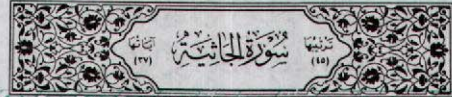 ترتيبها
(٤٥)
سُورَةُ الجَاثِيَةِ
آياتها
(٣٧)